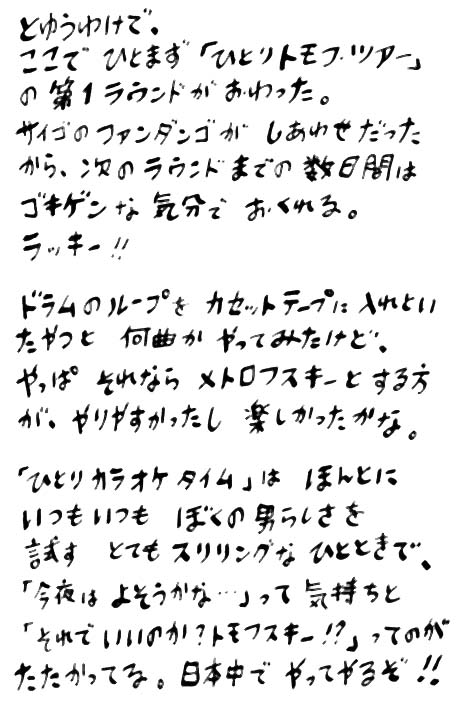 とゆうわけで。
ここで ひとまず「ひとりトモフ・ツアー」
の 第1ラウンドが おわった。
サイゴのファンダンゴが しあわせだった
から、次のラウンドまでの 数日間は
ゴキゲンな 気分で おくれる。
ラッキー!!
ドラムのループを カセットテープに 入れとい
たやつと 何曲か やってみたけど、
やっぱ それなら メトロフスキーと する方
が、やりやすかったし 楽しかったかな。
「ひとりカラオケタイム」は ほんとに
いつもいつも ぼくの男らしさを
試す とてもスリリングな ひとときで、
「今夜は よそうかな…」って 気持ちと
「それで いいのか？トモフスキー!?」ってのが
たたかってる。日本中で やってやるぞ!!